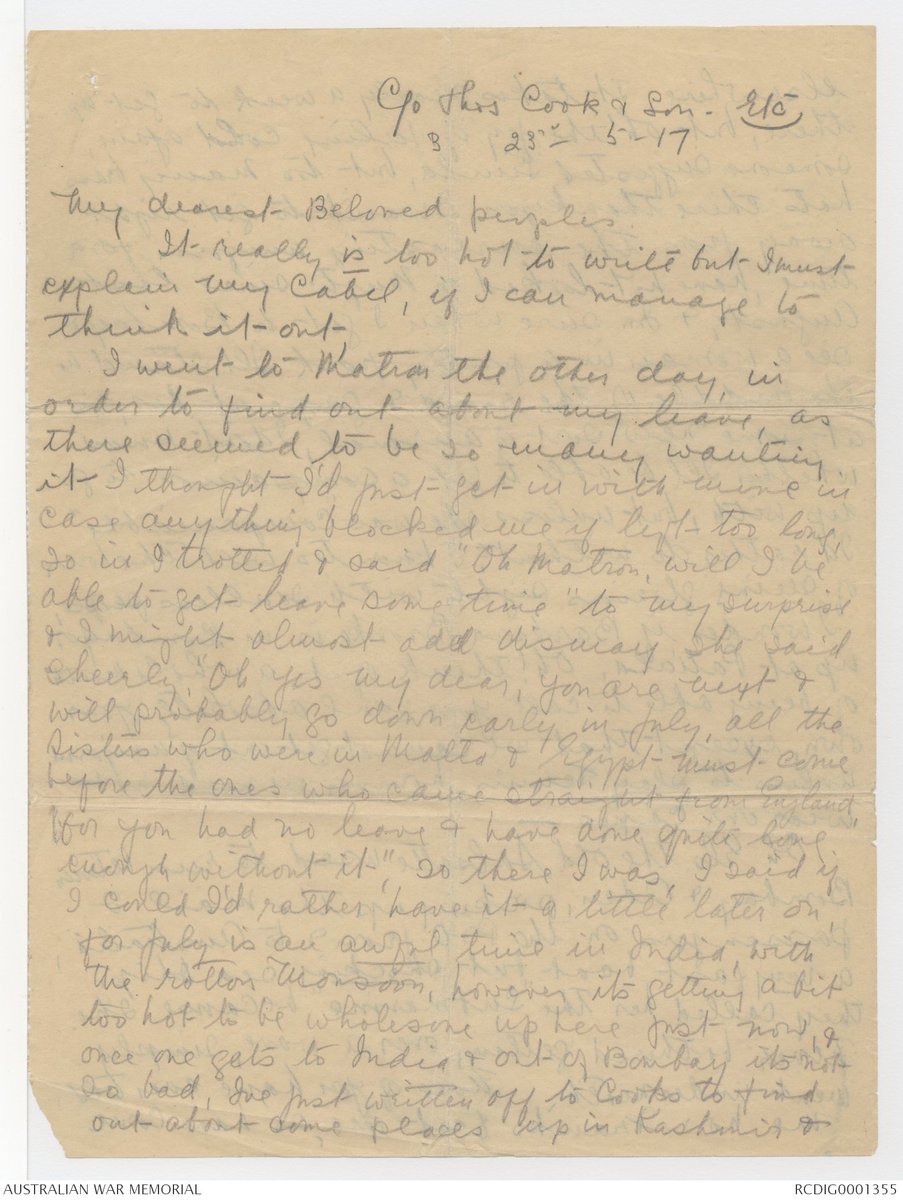 C/o Thos Cook & Son. Etc
3 23rd 5-17
My dearest Beloved peoples
It really is too hot to write but I must
explain my Cabel, if I can manage to
think it out,
I went to Matron the other day, in
order to find out about my leave, as
there seemed to be so many wanting
it I thought I'd just get in with mine in
case anything blocked me if left too long
so in I trotted & said "Oh Matron, will I be
able to get leave some time" to my surprise
& I might almost add dismay she said
cheerly, "Oh yes my dear, you are next &
will probably go down early in July, all the
Sisters who were in Malta & Egypt must come
before the ones who came straight from England
for you had no leave & have done quite long
enough without it", so there I was, I said if
I could I'd rather have it a little later on,
for July is an awful time in India, with
the rotton Monsoon, however its getting a bit
too hot to be wholesome up here just now, &
once one gets to India & out of Bombay its not
so bad, I've just written off to Cooks to find
out about some places up in Kashmir &
AUSTRALIAN WAR MEMORIAL
RCDIG0001355